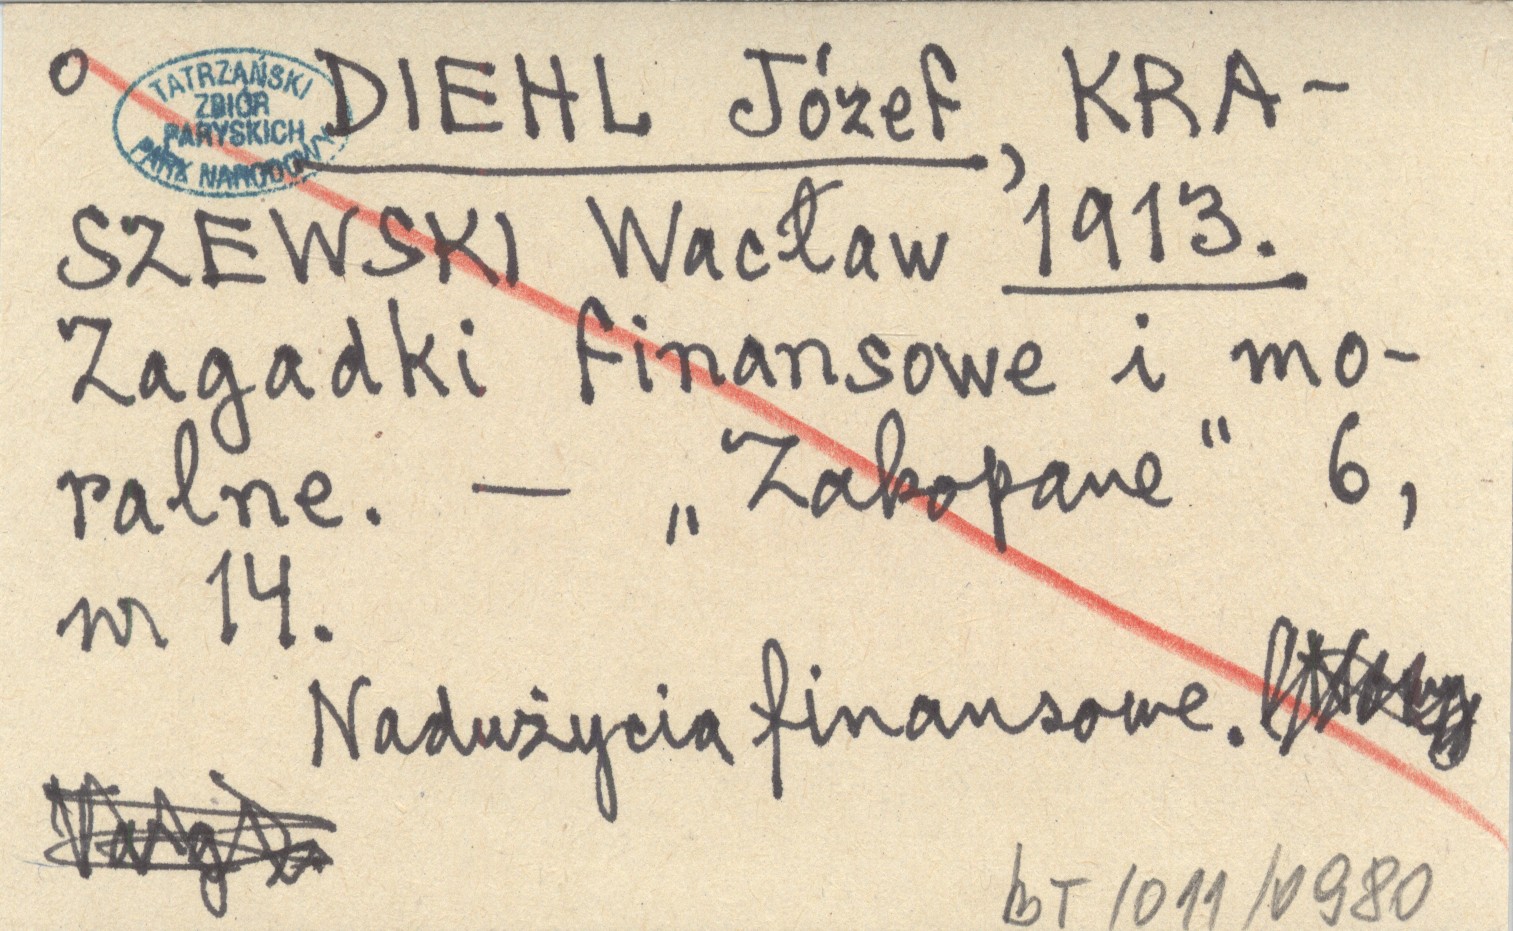 O
TATRZAŃSKI
ZBIÓR
PARYSKICH
PARK NARODOWY
DIEHL Józef, KRA-
SZEWSKI Wacław 1913.
Zagadki finansowe i mo-
ralne. — „Zakopane" 6,
nr 14.
Nadużycia finansowe.